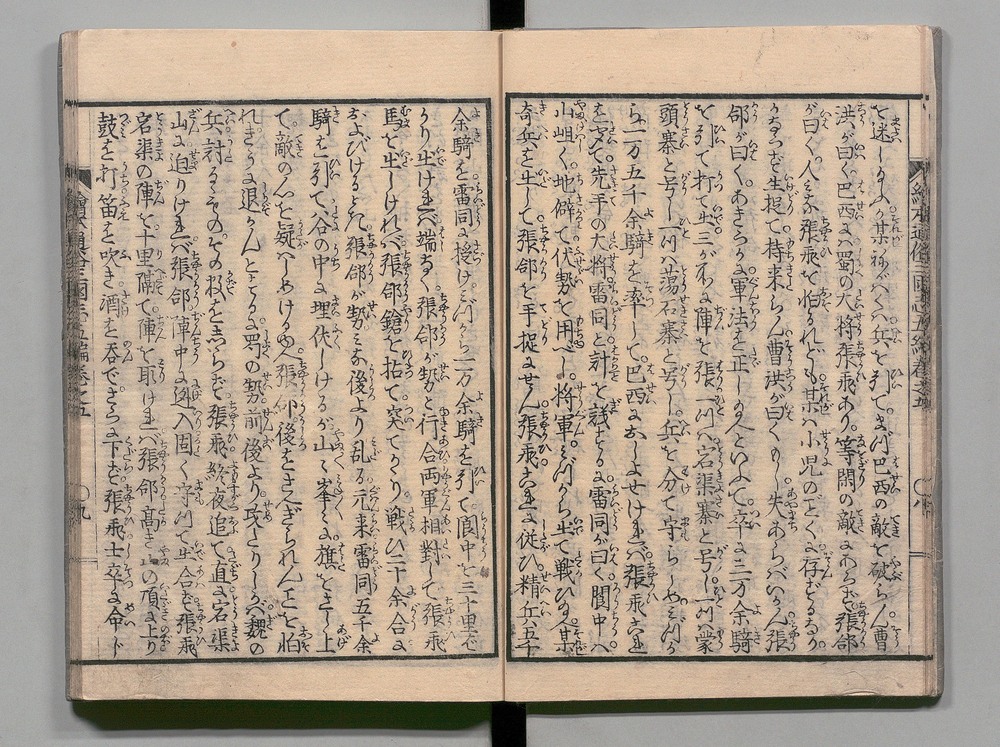 繪本通俗三國志五編卷之五 〇八
を迷し給ふ某 ねがくハ兵を引てまづ巴西の敵を破らん曹
洪が曰く巴西ハ蜀の大将張飛あり等閑の敵にあらず張郃
が曰く人ミな張飛を怕るれども某ハ小児のごとくに存ずるなり
かならず生捉て持来らん曹洪が曰くもし失あらバいかん張
郃が曰くあきらかに軍法を正し給へといふて卒に三万余騎
を引て打て出三が所に陣を張一ツハ宕渠寨と号し一ツハ蒙
頭寨と号し一ツハ蕩石寨と号し兵を分て守らしめミづか
ら一万五千余騎を率して巴西におしよせけれバ張飛これ
を聞て先手の大将雷同と計を議するに雷同が曰く閬中ハ
山岨く地僻て伏勢を用べし将軍ミづから出て戦ひ給へ某
奇兵を出して張郃を手捉にせん張飛これに従ひ精兵五千
余騎を雷同に授けミづから一万余騎を引て閬中を三十里
かり出けれバ端なく張郃が勢と行合両軍相對して張飛
馬を出しけれバ張郃鎗を拈て突てかゝり戦ひ二十余合に
およびけるとき張郃が勢ミな後より乱る元来雷同五千余
騎を引て谷の中に埋伏しけるが山々峯々に旗をさし上
て敵の心を疑ハしめける 張郃後をさへぎられんことを怕
れきうに退かんとするに蜀の勢前後より攻たりしかバ魏の
兵討るゝものその数をしらず張飛終夜追て直に宕渠
山に迫りけれバ張郃陣中に逃入固く守つて出合ず張飛
宕渠の陣を十里隔て陣を取けれバ張郃高き山の頂に上り
鼓を打笛を吹き酒を呑でさらに下ず張飛士卒に命じ
繪本通俗三國志五編卷之五 〇九